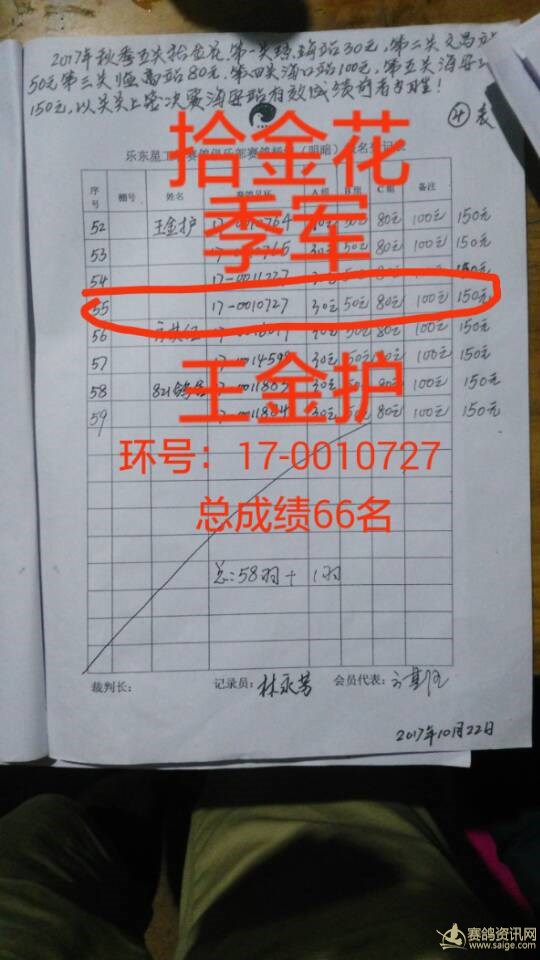 2017年秋季五关拾金花,第一关琼海站30元,第二关文昌站
50元第三关恒高站80元,第四关海口站100元,第五关海安站
150元,以关关上笼决赛海安站有效成绩前者为胜!
④表
拾金花
序号 棚号 姓名 A组 B组 C组 备注
李军
52 王金护 80元 100元 150元
53 80元 100元 150元
54 17-0011227 80元 100元 150元
55 17-0010727 30元 50元 80元 100元 150元
56 80元 100元 150元
57 30元 50元 80元 100元 150元
58 80元 100元 150元
59 30元 50元 80元 100元 150元
王金护
环号:17-0010727
总成绩66名
总:58羽+1羽
裁判长: 记录员:林永芳 会员代表:
2017年10月22日
赛鸽资讯网
www.saige.com